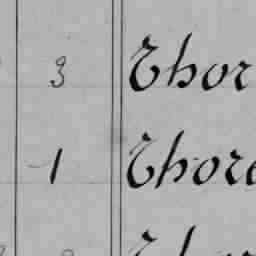 3 Thor
1 Thore